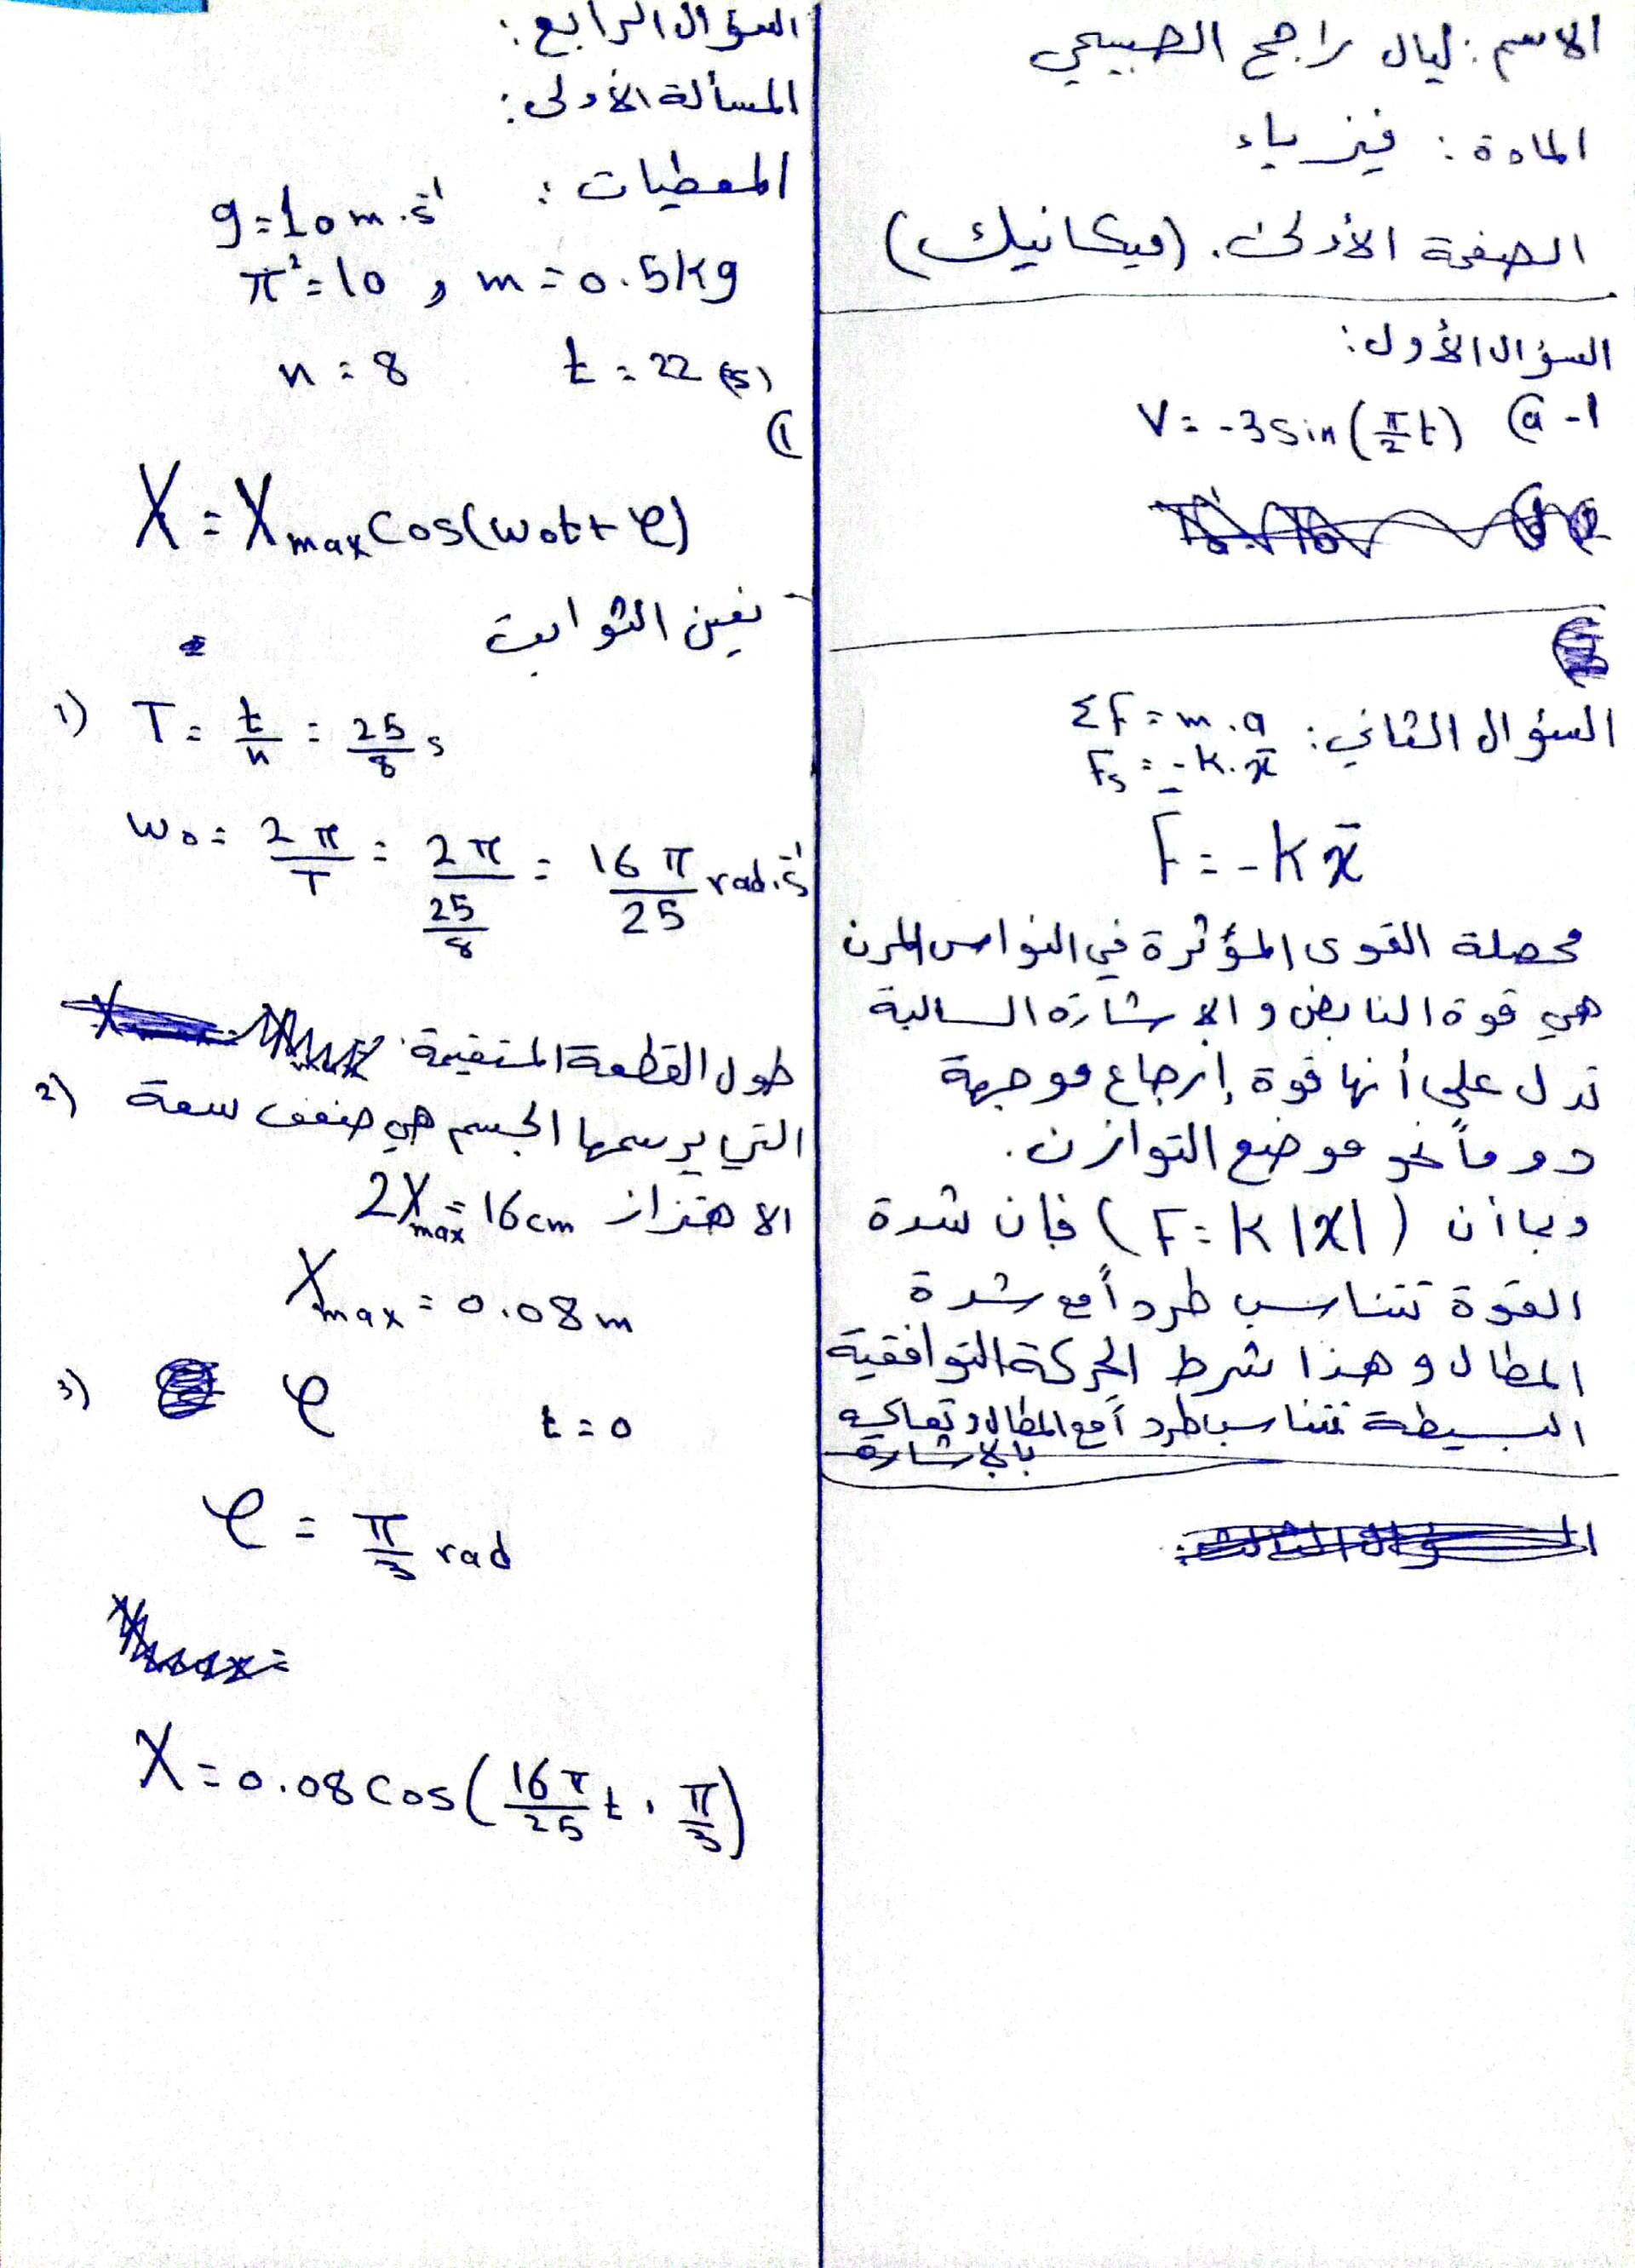 الاسم: ليال راجح الصبيحي
المادة: فيزياء
الصفحة الأولى. (ميكانيك)
السؤال الأول:
1- a) V = -3 sin(π/2 t)
السؤال الثاني: ΣF = m.a
Fs = -k.x̄
F̄ = -k x̄
محصلة القوى المؤثرة في النواس المرن
هي قوة النابض و الإشارة السالبة
تدل على أنها قوة إرجاع موجهة
دوماً نحو موضع التوازن.
وبما أن (F = k|x|) فإن شدة
القوة تتناسب طرداً مع شدة
المطال و هذا شرط الحركة التوافقية
البسيطة تتناسب طرداً مع المطال و تعاكسه
بالإشارة
السؤال الرابع:
المسألة الأولى:
المعطيات: g = 10 m.s⁻¹
π² = 10 , m = 0.5 kg
n = 8 t = 22 (s)
1)
X = Xmax cos(ω₀t + φ)
- نعين الثوابت
1) T = t/n = 25/8 s
ω₀ = 2π/T = 2π/(25/8) = 16π/25 rad.s⁻¹
طول القطعة المتقيمة
2) التي يرسمها الجسم هي ضعف سعة
الاهتزاز 2Xmax = 16 cm
Xmax = 0.08 m
3) φ t = 0
φ = π/3 rad
X = 0.08 cos(16π/25 t . π/3)